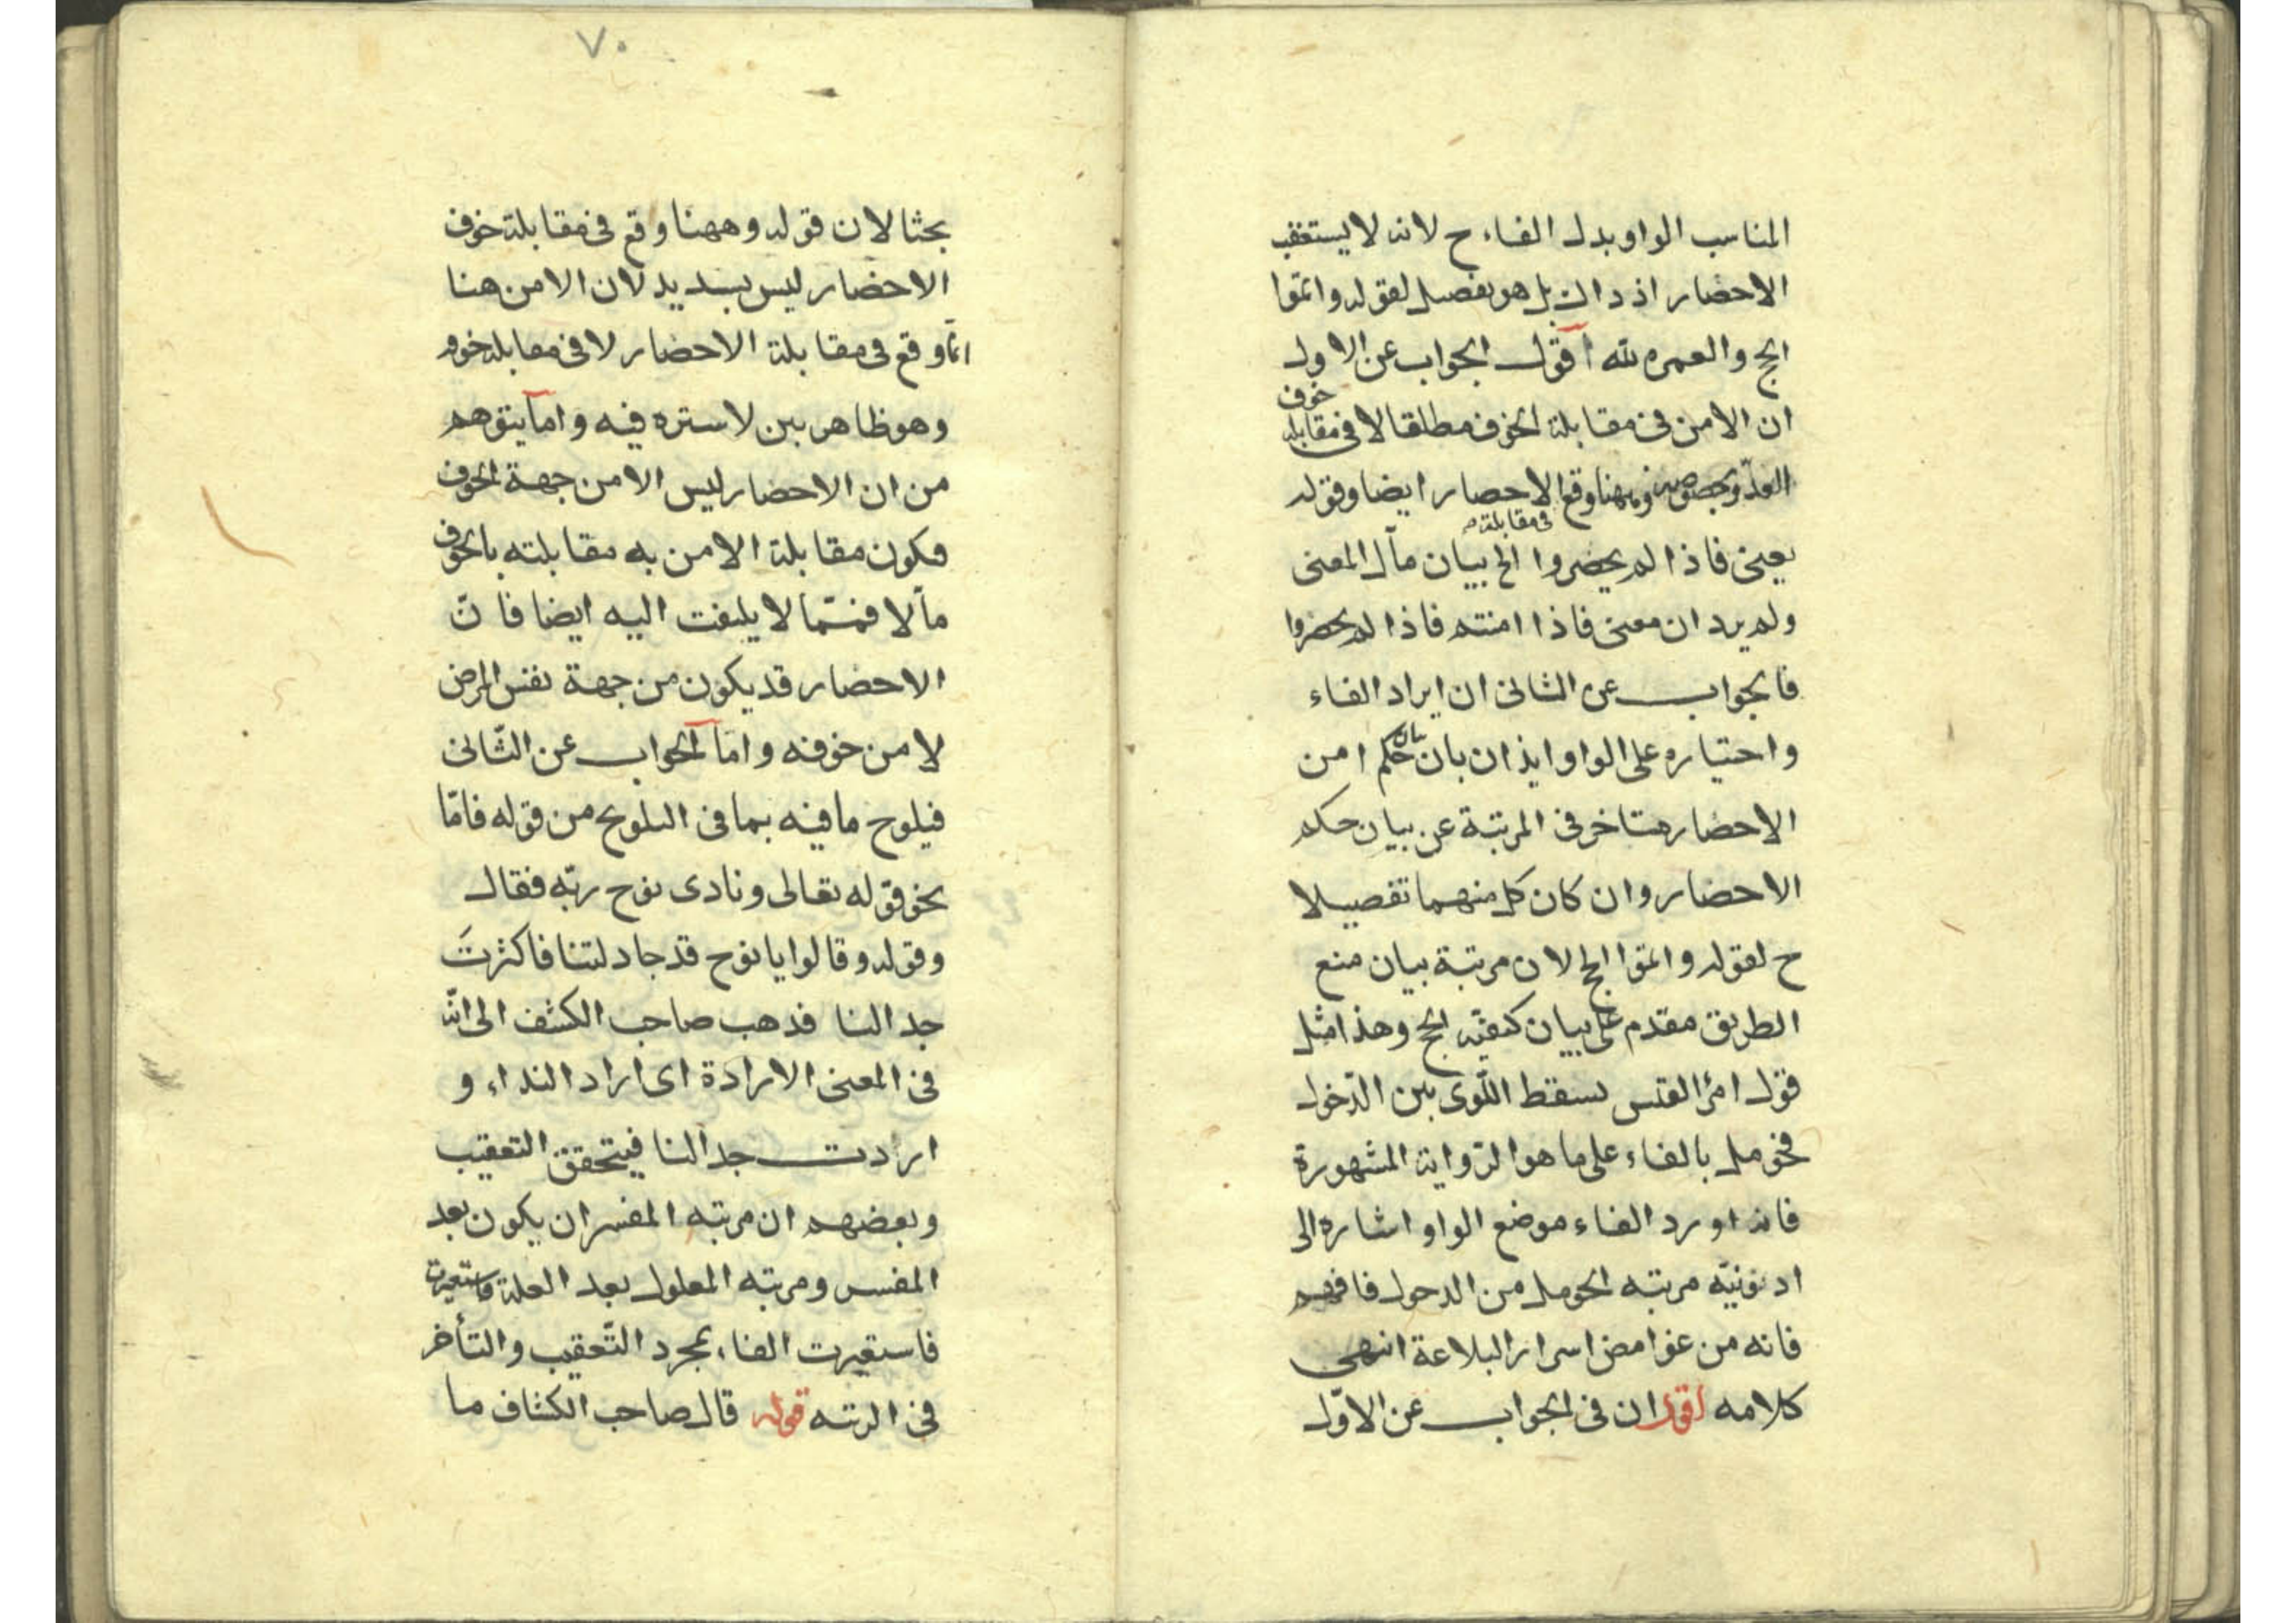 المناسب الواو بدل الفاء ح لانه لا يستعقب
الاحضار اذ ذاك بل هو تفصيل لقوله واتموا
الحج والعمره لله اقول الجواب عن الاول
ان الامن فى مقابلة الخوف مطلقا لا فى مقابلة خوف
العدو بخصوصه وههنا وقع فى مقابلة الاحصار ايضا وقوله
يعنى فاذا لم يحضروا الخ بيان مآل المعنى
ولم يرد ان معنى فاذا امنتم فاذا لم يحضروا
فالجواب عن الثانى ان ايراد الفاء
واحتياره على الواو ايذان بان بيان حكم امن
الاحضار متاخر فى المرتبة عن بيان حكم
الاحضار وان كان كل منهما تفصيلا
ح لقوله واتموا الحج لان مرتبة بيان منع
الطريق مقدم على بيان كيفيه الحج وهذا مثل
قول امرئ القيس بسقط اللّوى بين الدّخول
فحومل بالفاء على ما هو الرّواية المشهورة
فانه اورد الفاء موضع الواو اشاره الى
ادونيّه مرتبه الحومل من الدحول فافهم
فانه من غوامض اسرار البلاعة انتهى
كلامه اقول ان فى الجواب عن الاوّل
٧٠
بحثا لان قوله وههنا وقع فى مقابلة خوف
الاحضار ليس بسديد لان الامن هنا
انّما وقع فى مقابلة الاحضار لا فى مقابلة خوفه
وهو ظاهر بين لا ستره فيه واما يتوهم
من ان الاحضار ليس الا من جهة الخوف
فكون مقابلة الامن به مقابلته بالخوف
مآلا فممّا لا يلتفت اليه ايضا فانّ
الاحضار قد يكون من جهة نفس المرض
لا من خوفه واما الجواب عن الثّانى
فيلوح ما فيه بما فى التلويح من قوله فامّا
نحو قوله تعالى ونادى نوح ربّه فقال
وقوله وقالوا يا نوح قد جادلتنا فاكثرتَ
جدالنا فذهب صاحب الكشف الى انّه
فى المعنى الارادة اى اراد النداء و
اردت جدالنا فيتحقق التعقيب
وبعضهم ان مرتبه المفسر ان يكون بعد
المفسر ومرتبه المعلول بعد العلة فاستعيرت
فاستعيرت الفاء لمجرد التّعقيب والتأخر
فى الرتبه قوله قال صاحب الكشاف ما